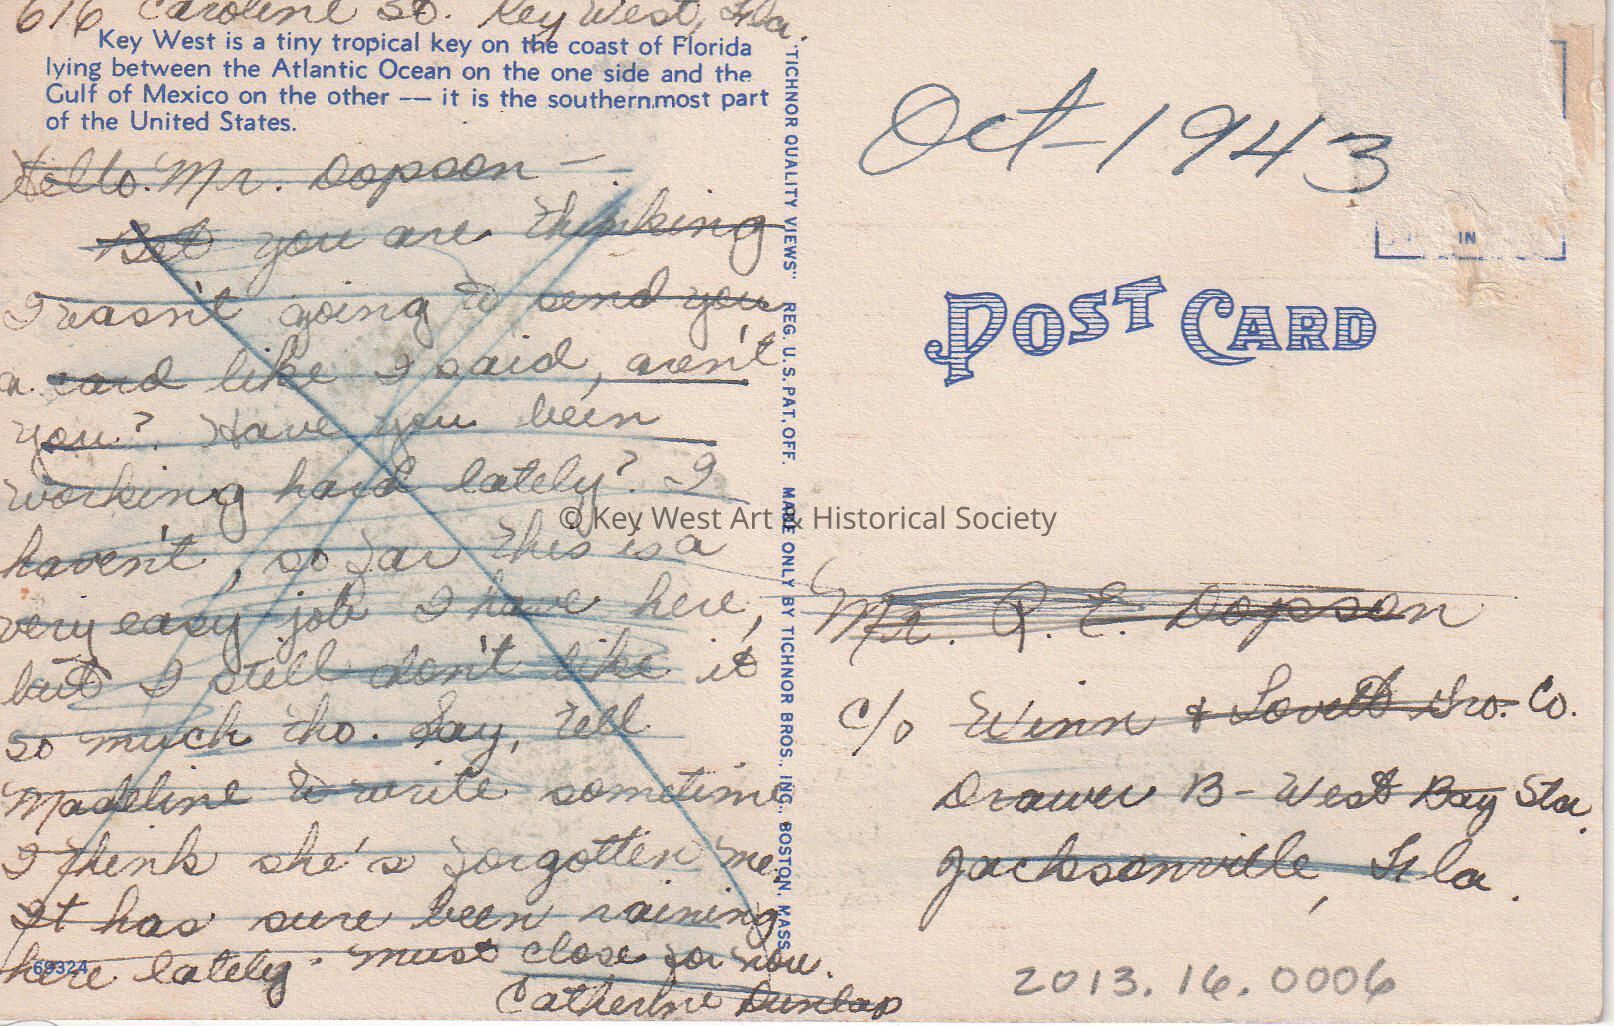 616 Caroline St. Key West, Fla.
Key West is a tiny tropical key on the coast of Florida
lying between the Atlantic Ocean on the one side and the
Gulf of Mexico on the other — it is the southern.most part
of the United States.
Hello Mr. Dopson —
Bet you are thinking
I wasn't going to send you
a card like I said, aren't
you? Have you been
working hard lately? I
haven't, so far this is a
very easy job I have here,
but I still don't like it
so much tho. Say, tell
Madeline to write sometime
I think she's forgotten me.
It has sure been raining
here lately. Must close for now.
Catherine Dunlap
69324
"TICHNOR QUALITY VIEWS" REG. U.S. PAT. OFF. MADE ONLY BY TICHNOR BROS., INC., BOSTON, MASS.
Oct-1943
IN
POST CARD
© Key West Art & Historical Society
Mr. R. E. Dopson
c/o Winn & Lovett Gro. Co.
Drawer B - West Bay Sta.
Jacksonville, Fla.
2013.16.0006